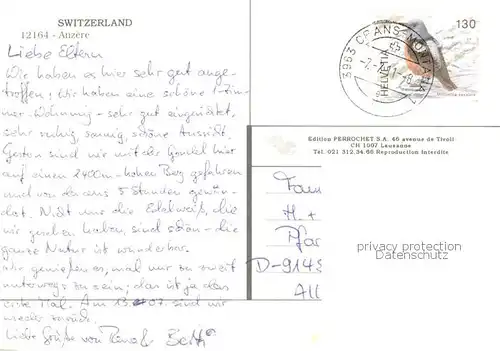 SWITZERLAND
12164 - Anzère
Liebe Eltern
Wir haben es hier sehr gut ange-
troffen! Wir haben eine schöne 1-Zim-
mer-Wohnung - sehr gut eingerichtet,
sehr ruhig, sonnig, schöne Aussicht.
Gestern sind wir mit der Gondel hier
auf einen 2400m-hohen Berg gefahren
und von da aus 5 Stunden gewan-
dert. Nicht nur die Edelweiß, die
wir gesehen haben, sind schön - die
ganze Natur ist wunderbar.
Wir genießen es, mal nur zu zweit
unterwegs zu sein; das ist ja das
erste Mal. Am 13. 07. sind wir
wieder zurück.
Liebe Grüße von
130
3963 CRANS-MONTANA
HELVETIA
Edition PERROCHET S.A. 46 avenue de Tivoli
CH 1007 Lausanne
Tel. 021 312.34.66 Reproduction interdite
Fam
H. +
Pfar
D-9145
All
privacy protection
Datenschutz